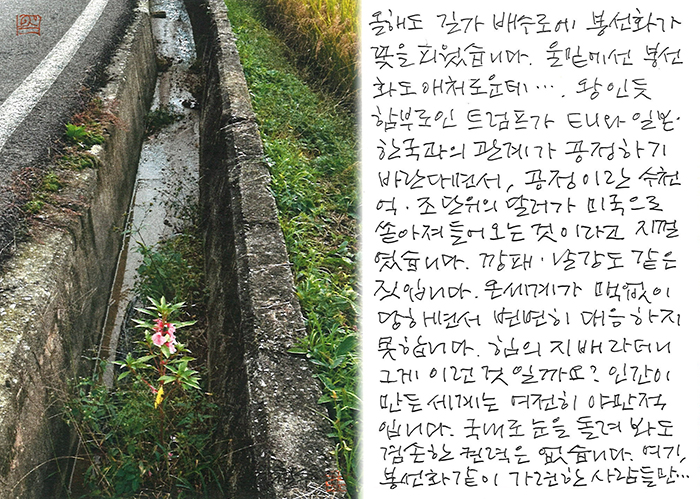 올해도 길가 배수로에 봉선화가
꽃을 피웠습니다. 울밑에선 봉선
화도 애처로운데…. 왕인듯
함부로인 트럼프가 EU와 일본·
한국과의 관계가 공정하기
바란다면서, 공정이란 수천
억·조 단위의 달러가 미국으로
쏟아져 들어오는 것이라고 지껄
였습니다. 깡패·날강도 같은
짓입니다. 온세계가 맥없이
당하면서 변변히 대응하지
못합니다. 힘의 지배라더니
그게 이런 것 일까요? 인간이
만든 세계는 여전히 야만적
입니다. 국내로 눈을 돌려 봐도
겸손한 권력은 없습니다. 여기,
봉선화같이 가련한 사람들만…